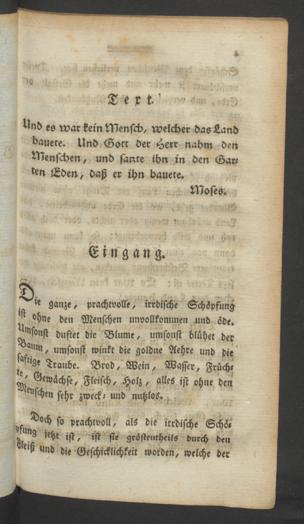 Text.
Und es war kein Mensch, welcher das Land
bauete. Und Gott der Herr nahm den
Menschen, und satzte ihn in den Gar
ten Eden, daß er ihn bauete.
Moses.
Eingang.
Die ganze, prachtvolle, irrdische Schöpfung
ist ohne den Menschen unvollkommen und öde.
Umsonst duftet die Blume, umsonst blühet der
Baum, umsonst winkt die goldne Aehre und die
saftige Traube. Brod, Wein, Wasser, Früch-
te, Gewächse, Fleisch, Holz, alles ist ohne den
Menschen sehr zweck- und nutzlos.
Doch so prachtvoll, als die irrdische Schö-
pfung jetzt ist, ist sie gröstentheils durch den
Fleiß und die Geschicklichkeit worden, welche der